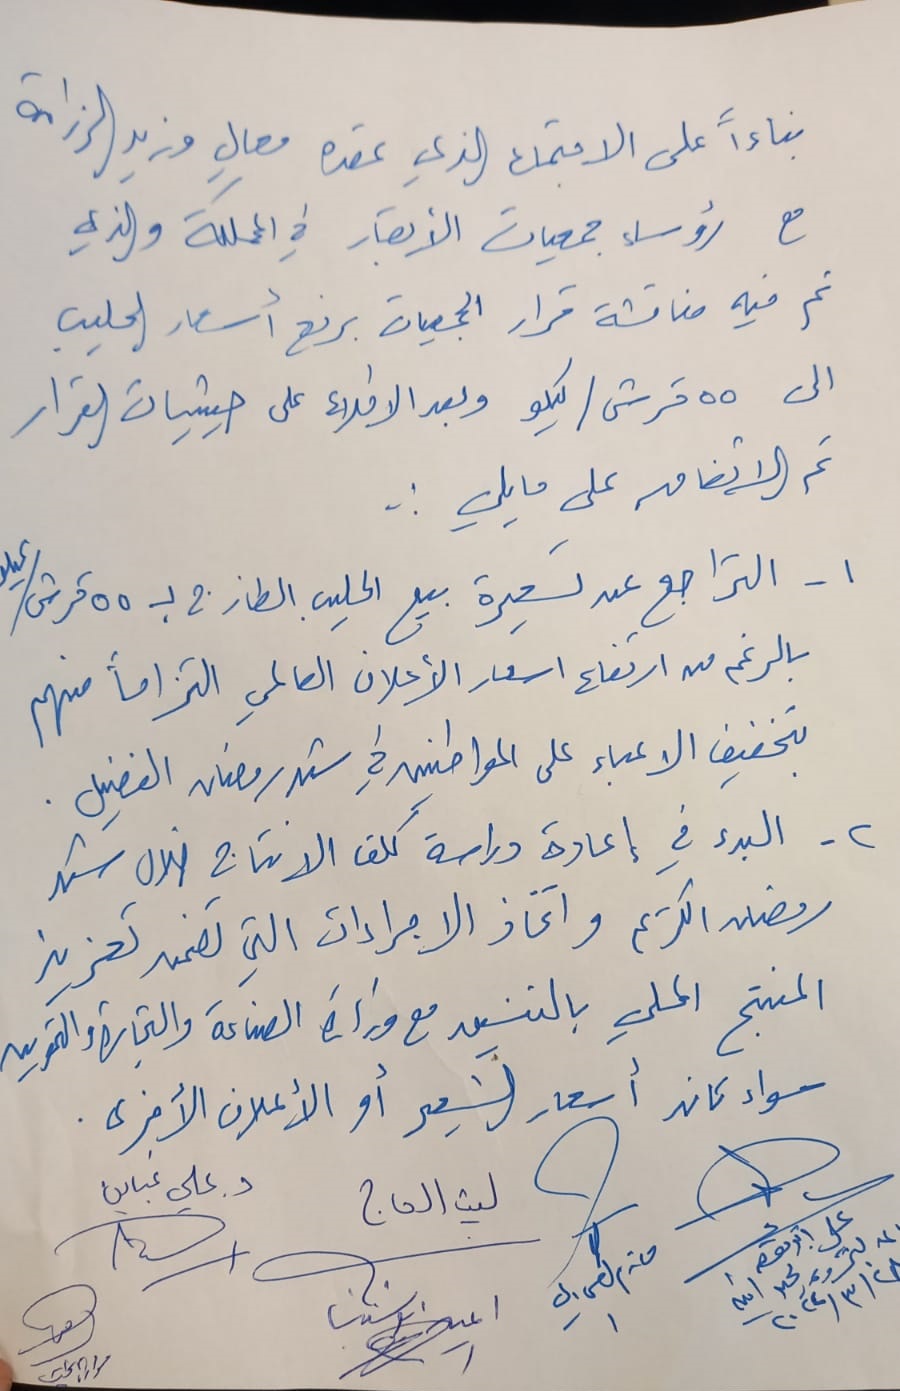 بناءاً على الاجتماع الذي عقده معالي وزير الزراعة
مع رؤساء جمعيات الأبقار في المملكة والذي
تم فيه مناقشة قرار الجمعيات برفع أسعار الحليب
الى ٥٥ قرش/كيلو وبعد الاطلاع على حيثيات القرار
تم الاتفاق على مايلي :-
١- التراجع عن تسعيرة بيع الحليب الطازج بـ ٥٥ قرش/كيلو
بالرغم من ارتفاع اسعار الأعلاف العالمي التزاماً منهم
بتخفيف الاعباء على المواطنين في شهر رمضان الفضيل .
٢- البدء في إعادة دراسة كلف الانتاج خلال شهر
رمضان الكريم واتخاذ الاجراءات التي تضمن تعزيز
المنتج المحلي بالتنسيق مع وزارة الصناعة والتجارة والتموين
سواء كانت أسعار الشعير أو الأعلاف الأخرى .
د. علي غباين
ليث الحاج